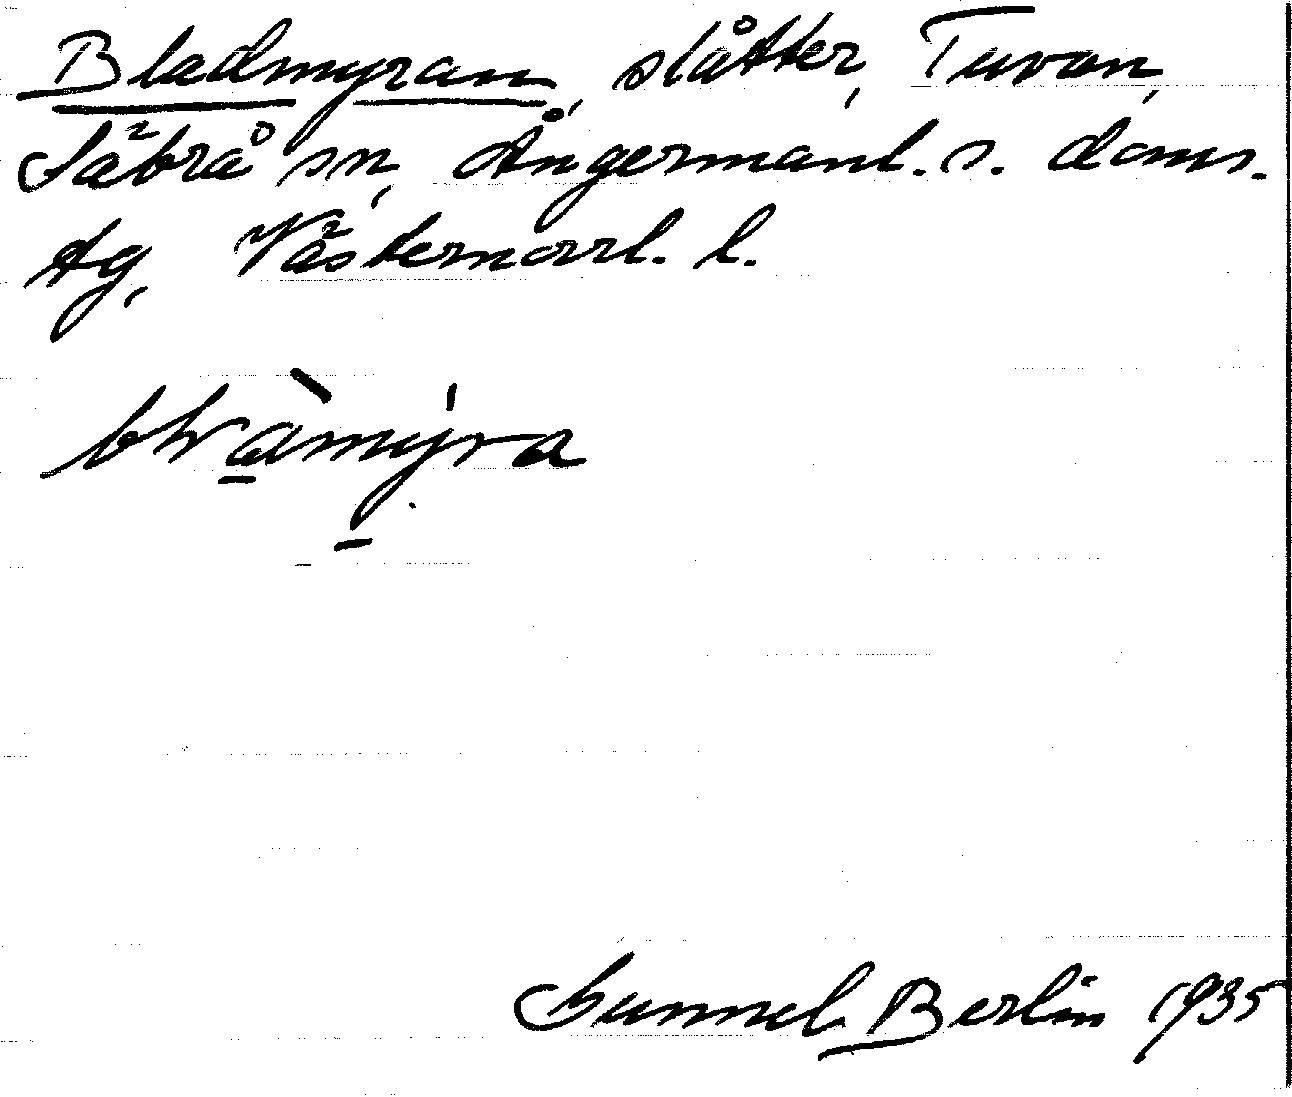 Bladmyran, slåtter, Tuvan,
Säbrå sn, Ångermanl. s. doms.
tg, Västernorrl. l.
Gunnel Berlin 1935